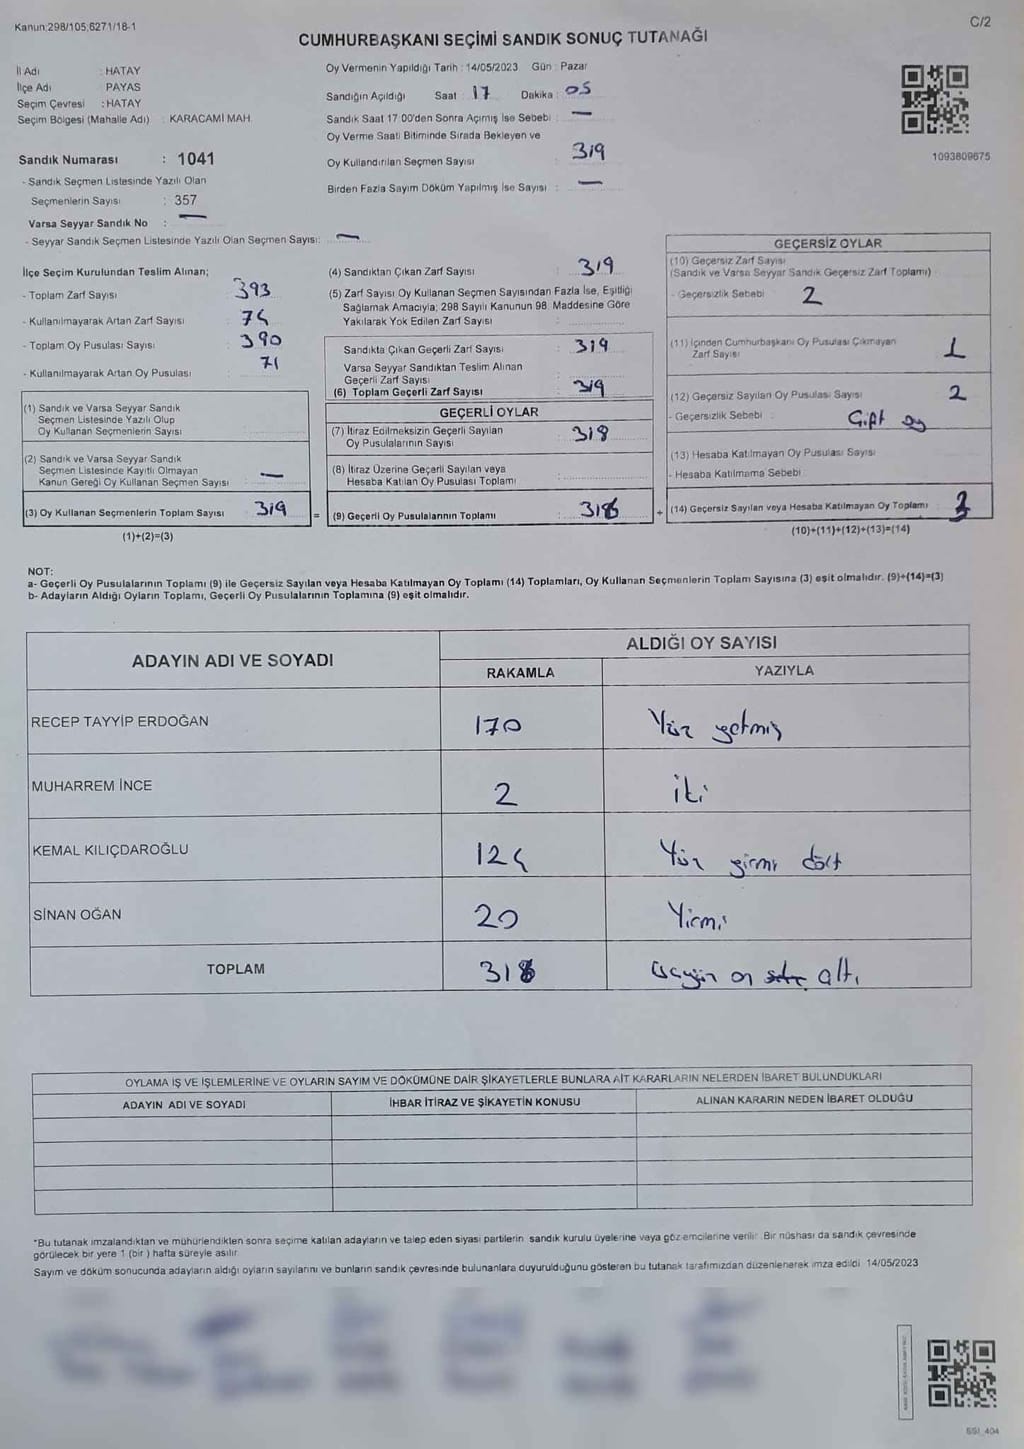 Kanun:298/105;6271/18-1
C/2
CUMHURBAŞKANI SEÇİMİ SANDIK SONUÇ TUTANAĞI
İl Adı : HATAY
İlçe Adı : PAYAS
Seçim Çevresi : HATAY
Seçim Bölgesi (Mahalle Adı) : KARACAMİ MAH.
Sandık Numarası : 1041
- Sandık Seçmen Listesinde Yazılı Olan
Seçmenlerin Sayısı : 357
Varsa Seyyar Sandık No : —
- Seyyar Sandık Seçmen Listesinde Yazılı Olan Seçmen Sayısı: —
Oy Vermenin Yapıldığı Tarih : 14/05/2023 Gün : Pazar
Sandığın Açıldığı Saat : 17 Dakika : 05
Sandık Saat 17.00'den Sonra Açılmış İse Sebebi : —
Oy Verme Saati Bitiminde Sırada Bekleyen ve
Oy Kullandırılan Seçmen Sayısı : 319
Birden Fazla Sayım Döküm Yapılmış İse Sayısı : —
1093809675
İlçe Seçim Kurulundan Teslim Alınan;
- Toplam Zarf Sayısı 393
- Kullanılmayarak Artan Zarf Sayısı 74
- Toplam Oy Pusulası Sayısı 390
- Kullanılmayarak Artan Oy Pusulası 71
(1) Sandık ve Varsa Seyyar Sandık
Seçmen Listesinde Yazılı Olup
Oy Kullanan Seçmenlerin Sayısı :
(2) Sandık ve Varsa Seyyar Sandık
Seçmen Listesinde Kayıtlı Olmayan
Kanun Gereği Oy Kullanan Seçmen Sayısı : —
(3) Oy Kullanan Seçmenlerin Toplam Sayısı : 319
(1)+(2)=(3)
=
(4) Sandıktan Çıkan Zarf Sayısı : 319
(5) Zarf Sayısı Oy Kullanan Seçmen Sayısından Fazla İse, Eşitliği
Sağlamak Amacıyla; 298 Sayılı Kanunun 98. Maddesine Göre
Yakılarak Yok Edilen Zarf Sayısı :
Sandıkta Çıkan Geçerli Zarf Sayısı : 319
Varsa Seyyar Sandıktan Teslim Alınan
Geçerli Zarf Sayısı :
(6) Toplam Geçerli Zarf Sayısı : 319
GEÇERLİ OYLAR
(7) İtiraz Edilmeksizin Geçerli Sayılan
Oy Pusulalarının Sayısı : 318
(8) İtiraz Üzerine Geçerli Sayılan veya
Hesaba Katılan Oy Pusulası Toplamı :
(9) Geçerli Oy Pusulalarının Toplamı : 316
+
GEÇERSİZ OYLAR
(10) Geçersiz Zarf Sayısı
(Sandık ve Varsa Seyyar Sandık Geçersiz Zarf Toplamı)
- Geçersizlik Sebebi : 2
(11) İçinden Cumhurbaşkanı Oy Pusulası Çıkmayan
Zarf Sayısı : 1
(12) Geçersiz Sayılan Oy Pusulası Sayısı : 2
- Geçersizlik Sebebi : Çift oy
(13) Hesaba Katılmayan Oy Pusulası Sayısı :
- Hesaba Katılmama Sebebi :
(14) Geçersiz Sayılan veya Hesaba Katılmayan Oy Toplamı : 3
(10)+(11)+(12)+(13)=(14)
NOT:
a- Geçerli Oy Pusulalarının Toplamı (9) ile Geçersiz Sayılan veya Hesaba Katılmayan Oy Toplamı (14) Toplamları, Oy Kullanan Seçmenlerin Toplam Sayısına (3) eşit olmalıdır. (9)+(14)=(3)
b- Adayların Aldığı Oyların Toplamı, Geçerli Oy Pusulalarının Toplamına (9) eşit olmalıdır.
ADAYIN ADI VE SOYADI
ALDIĞI OY SAYISI
RAKAMLA YAZIYLA
RECEP TAYYİP ERDOĞAN 170 Yüz yetmiş
MUHARREM İNCE 2 iki
KEMAL KILIÇDAROĞLU 124 Yüz yirmi dört
SİNAN OĞAN 20 Yirmi
TOPLAM 316 üçyüz on altı
OYLAMA İŞ VE İŞLEMLERİNE VE OYLARIN SAYIM VE DÖKÜMÜNE DAİR ŞİKAYETLERLE BUNLARA AİT KARARLARIN NELERDEN İBARET BULUNDUKLARI
ADAYIN ADI VE SOYADI İHBAR İTİRAZ VE ŞİKAYETİN KONUSU ALINAN KARARIN NEDEN İBARET OLDUĞU
*Bu tutanak imzalandıktan ve mühürlendikten sonra seçime katılan adayların ve talep eden siyasi partilerin sandık kurulu üyelerine veya gözlemcilerine verilir. Bir nüshası da sandık çevresinde
görülecek bir yere 1 (bir ) hafta süreyle asılır.
Sayım ve döküm sonucunda adayların aldığı oyların sayılarını ve bunların sandık çevresinde bulunanlara duyurulduğunu gösteren bu tutanak tarafımızdan düzenlenerek imza edildi. 14/05/2023
SSI_404